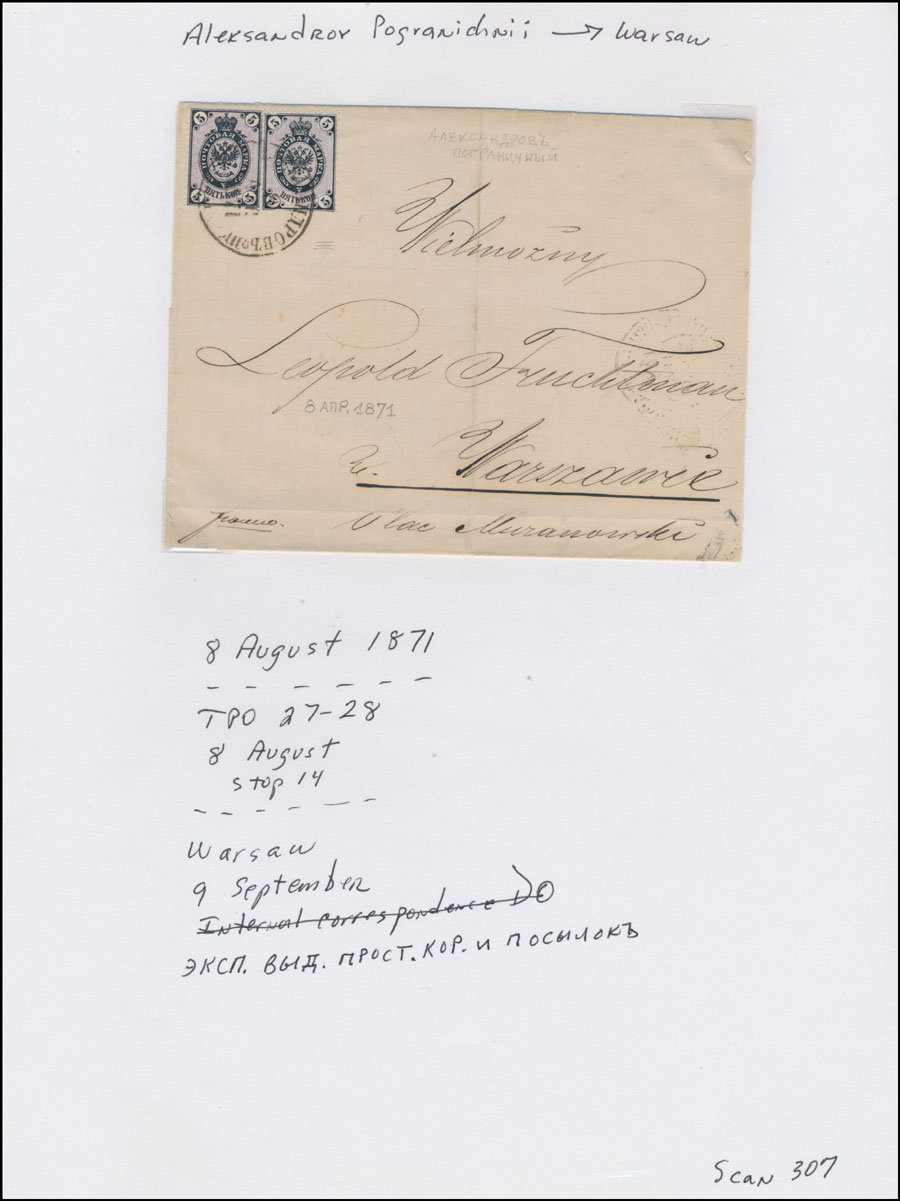 Aleksandrov Pogranichnii → Warsaw
5 5 5 5
ПОЧТОВАЯ МАРКА
ПЯТЬ КОП
5 5 5 5
ПОЧТОВАЯ МАРКА
ПЯТЬ КОП
ДРОВЪ
АЛЕКСАНДРОВЪ
ПОГРАНИЧНЫЙ
Wielmożny
Leopold Fruchtman
8 АПР. 1871
w. Warszawie
franco. Plac Muranowski
8 August 1871
TPO 27-28
8 August
stop 14
Warsaw
9 September
Internal correspondence DO
ЭКСП. ВЫД. ПРОСТ. КОР. И ПОСЫЛОКЪ
Scan 307